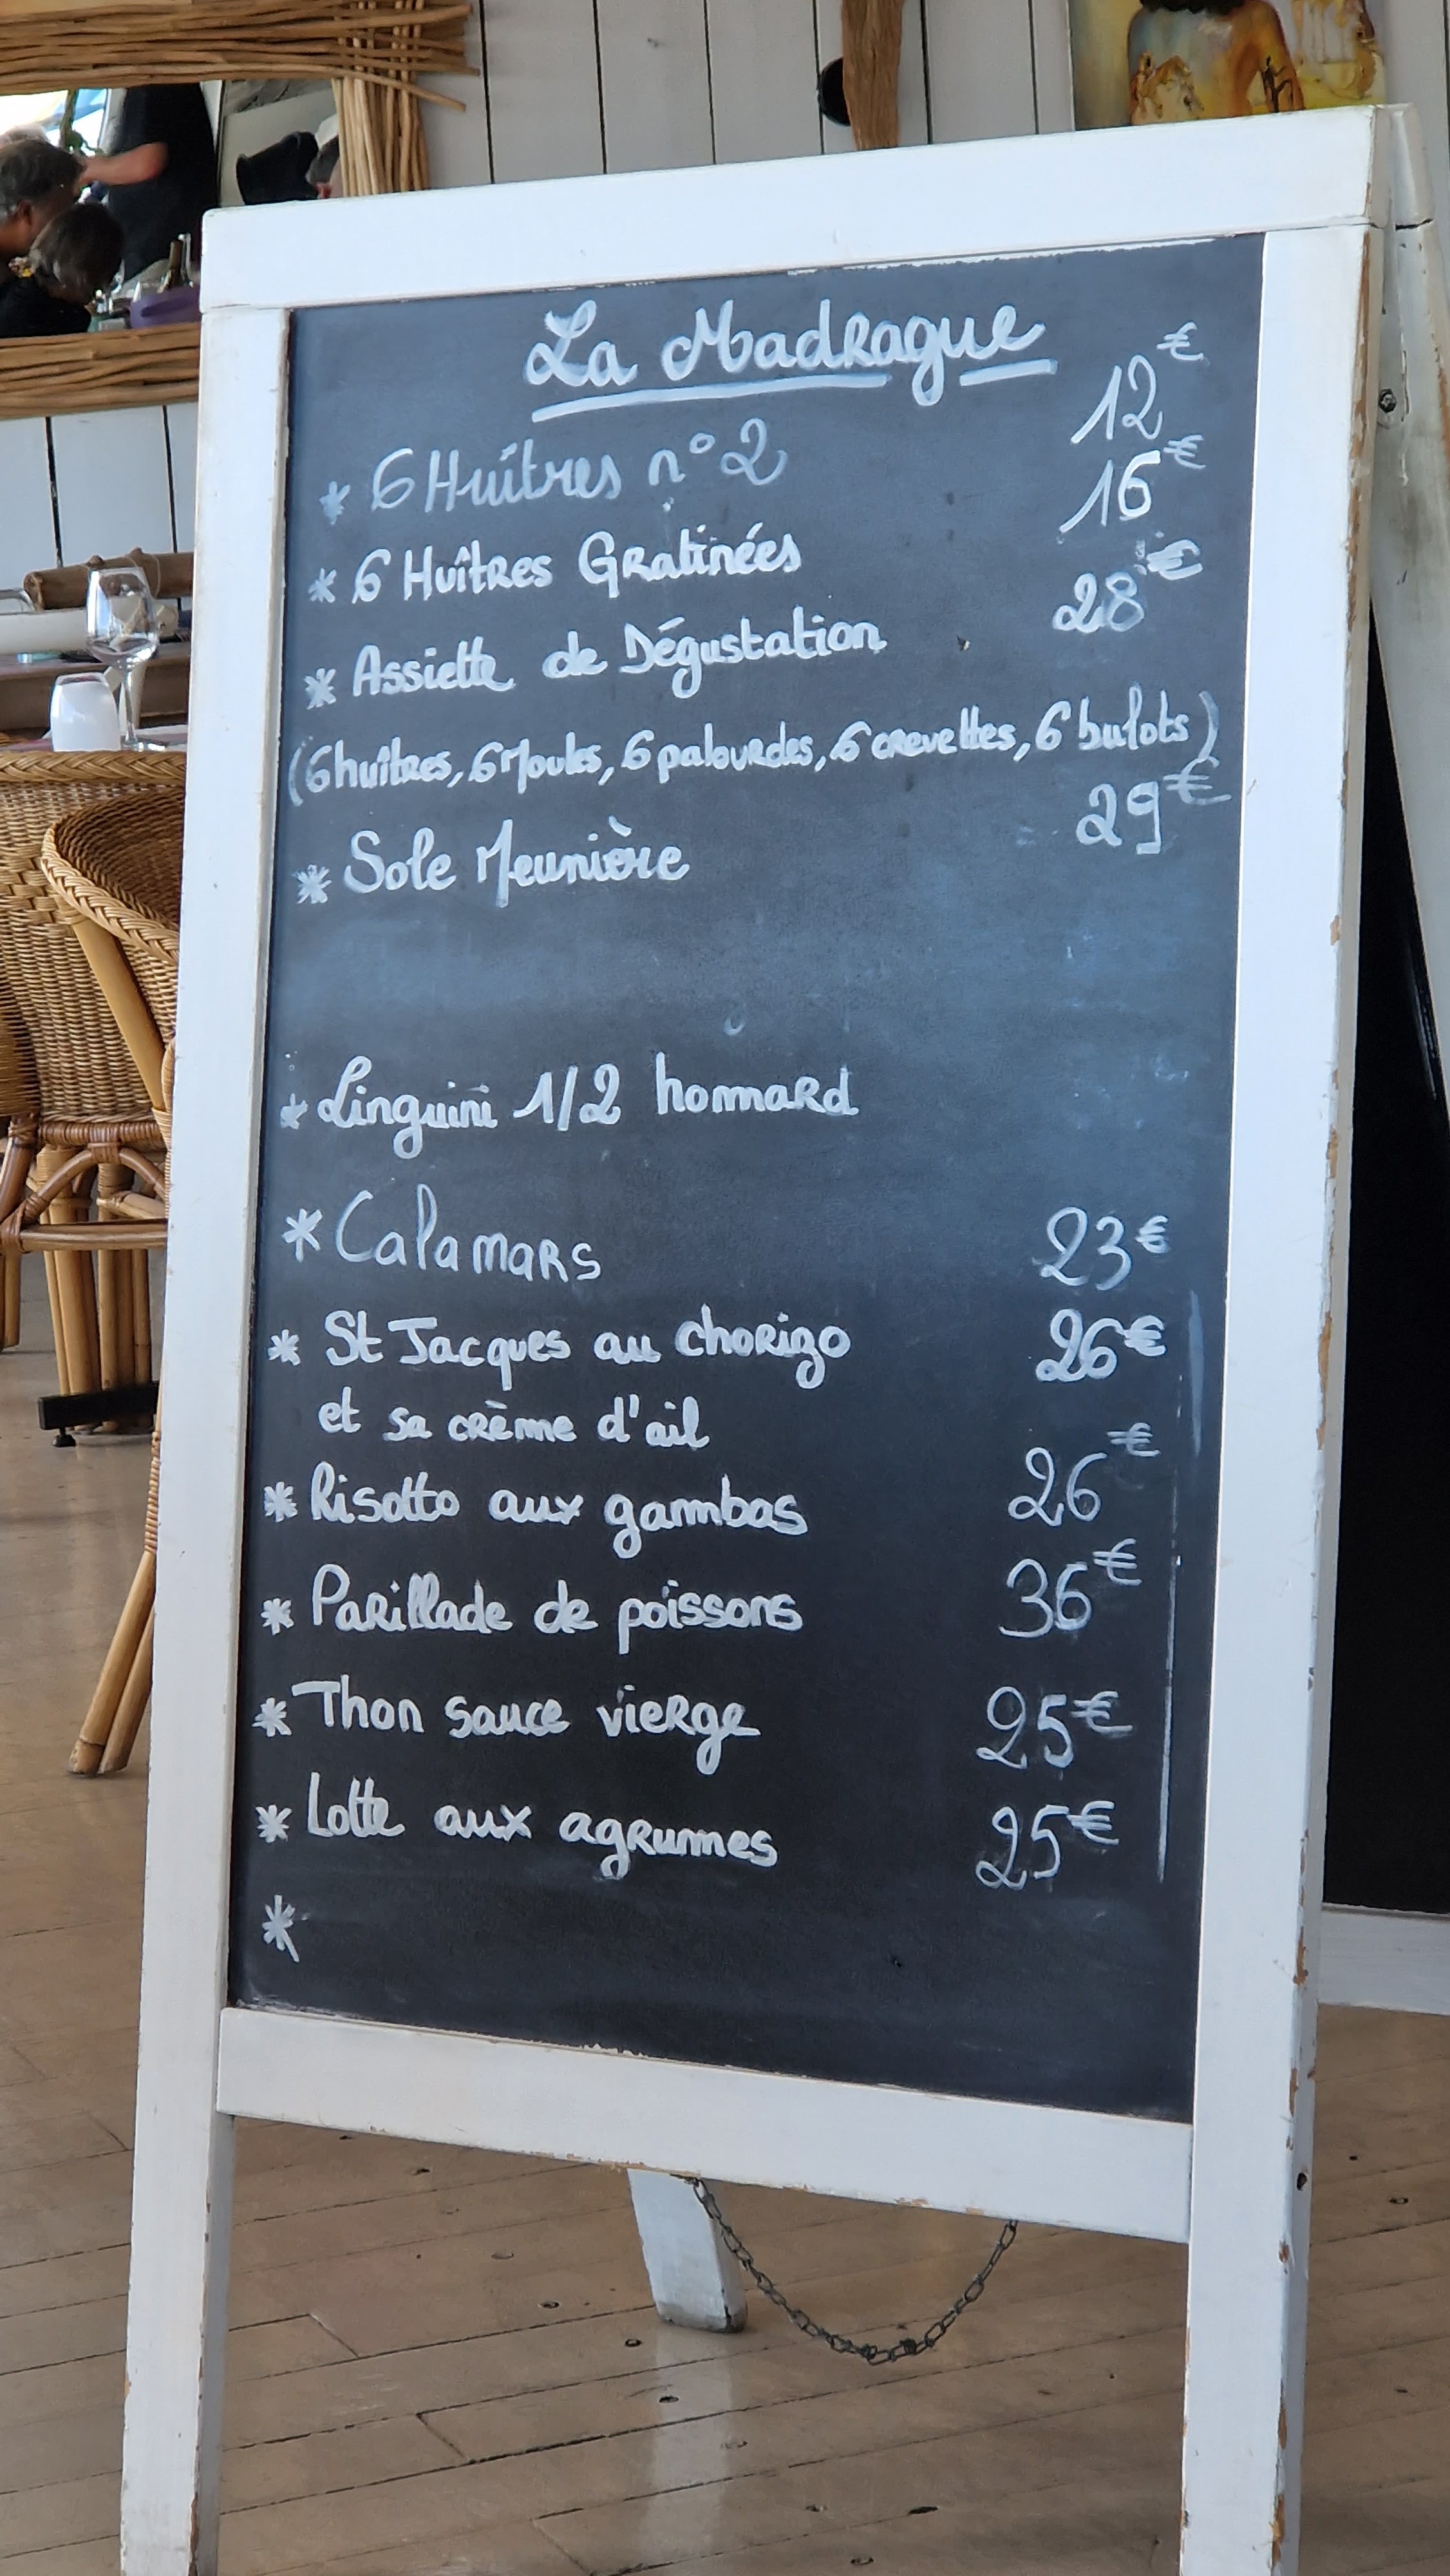 La Madrague
* 6 Huîtres n°2 12€
* 6 Huîtres Gratinées 16€
* Assiette de Dégustation 28€
(6 huîtres, 6 Moules, 6 palourdes, 6 crevettes, 6 bulots)
* Sole Meunière 29€
* Linguini 1/2 homard
* Calamars 23€
* St Jacques au chorizo 26€
et sa crème d'ail
* Risotto aux gambas 26€
* Parillade de poissons 36€
* Thon sauce vierge 25€
* Lotte aux agrumes 25€
*